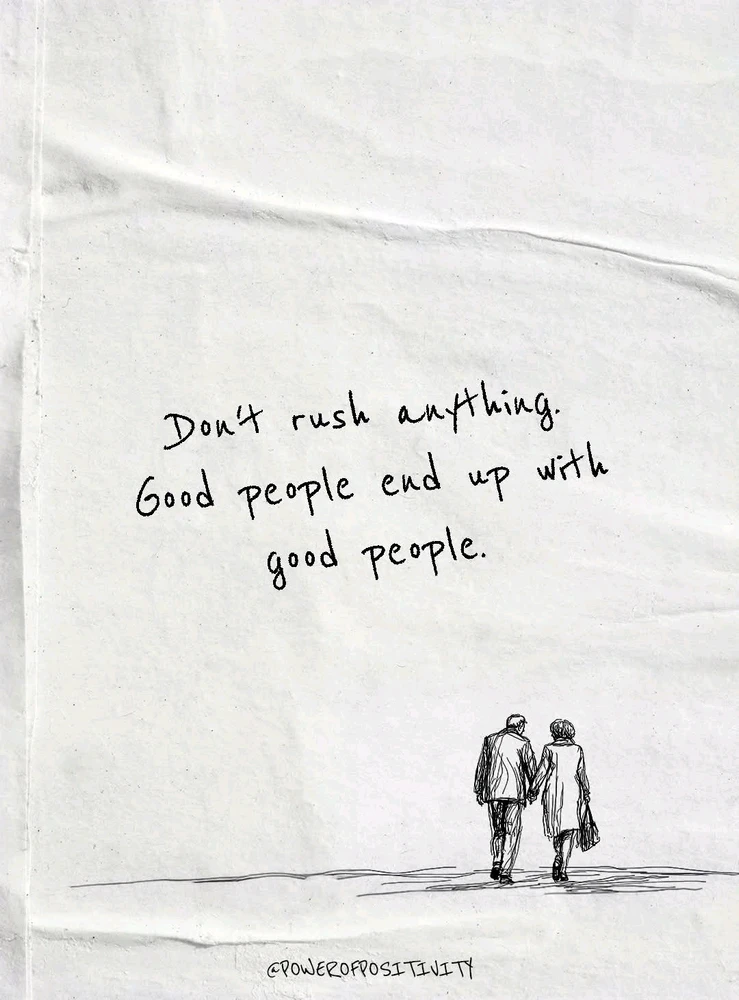 Don't rush anything.
Good people end up with
good people.
@POWEROFPOSITIVITY